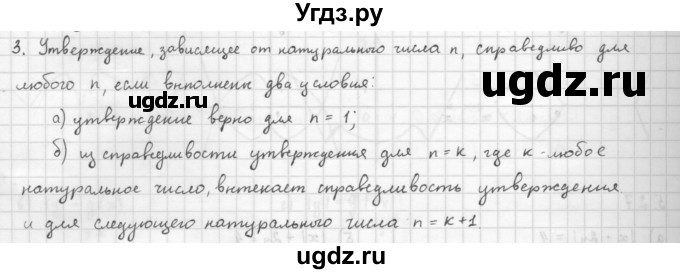 Угдз.ру
3. Утверждение, зависящее от натурального числа n, справедливо для
любого n, если выполнены два условия:
ugdz.ru
ugdz.ru
ugdz.ru
а) утверждение верно для n = 1;
б) из справедливости утверждения для n = k, где k - любое
натуральное число, вытекает справедливость утверждения
и для следующего натурального числа n = k+1
ugdz.ru
ugdz.ru